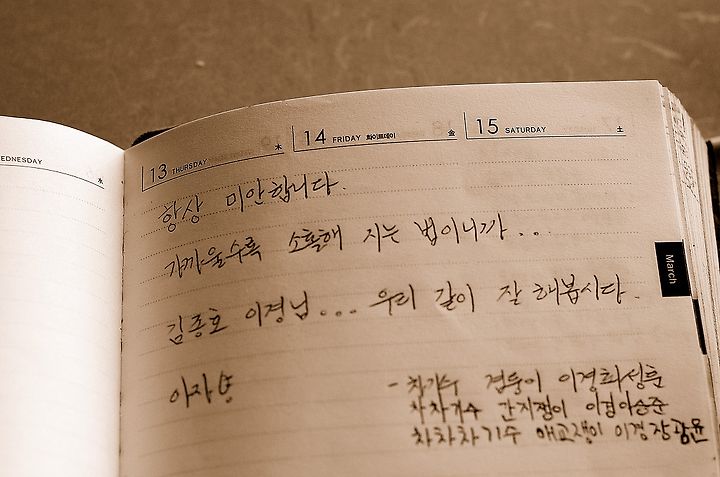 EDNESDAY 水
13 THURSDAY 木
14 FRIDAY 화이트데이 金
15 SATURDAY 土
March
항상 미안합니다.
가까울수록 소홀해 지는 법이니까...
김종호 이경님.... 우리 같이 잘 해봅시다.
아자
- 차기수 검둥이 이경화성훈
차차기수 간지쟁이 이경이승준
차차차기수 애교쟁이 이경장광윤